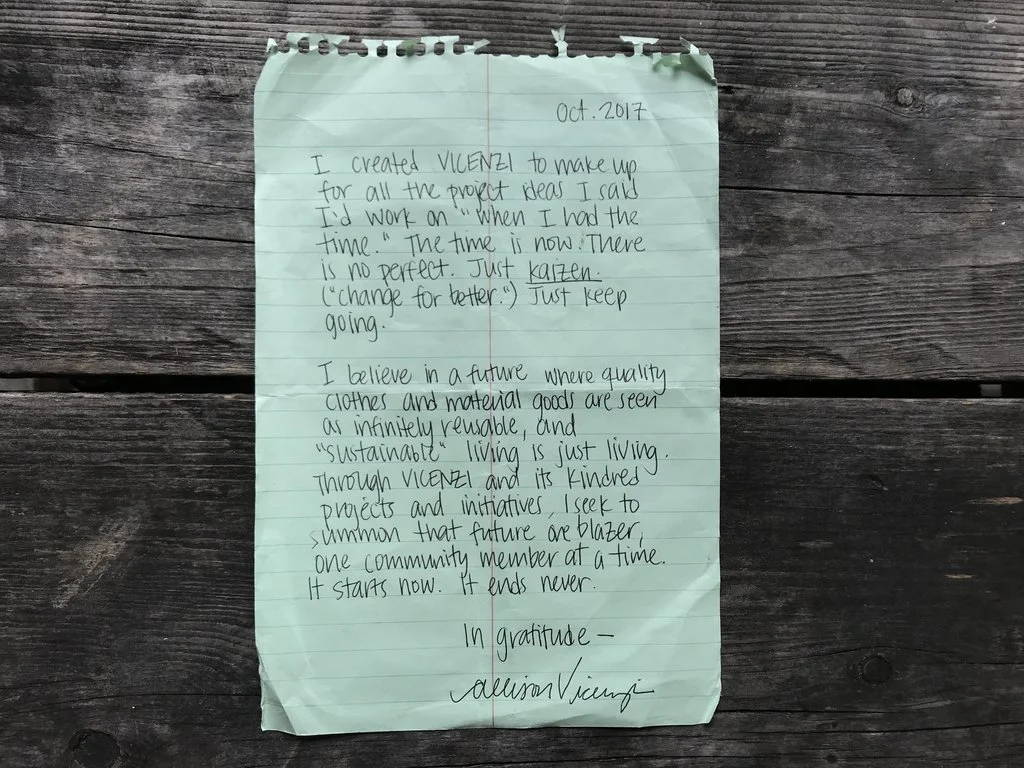 Oct. 2017
I created VICENZI to make up
for all the project ideas I said
I'd work on "when I had the
time." The time is now. There
is no perfect. Just kaizen.
("change for better.") Just keep
going.
I believe in a future where quality
clothes and material goods are seen
as infinitely reusable, and
"sustainable" living is just living.
Through VICENZI and its kindred
projects and initiatives, I seek to
summon that future one blazer,
one community member at a time.
It starts now. It ends never.
In gratitude —
Allison Vicenzi